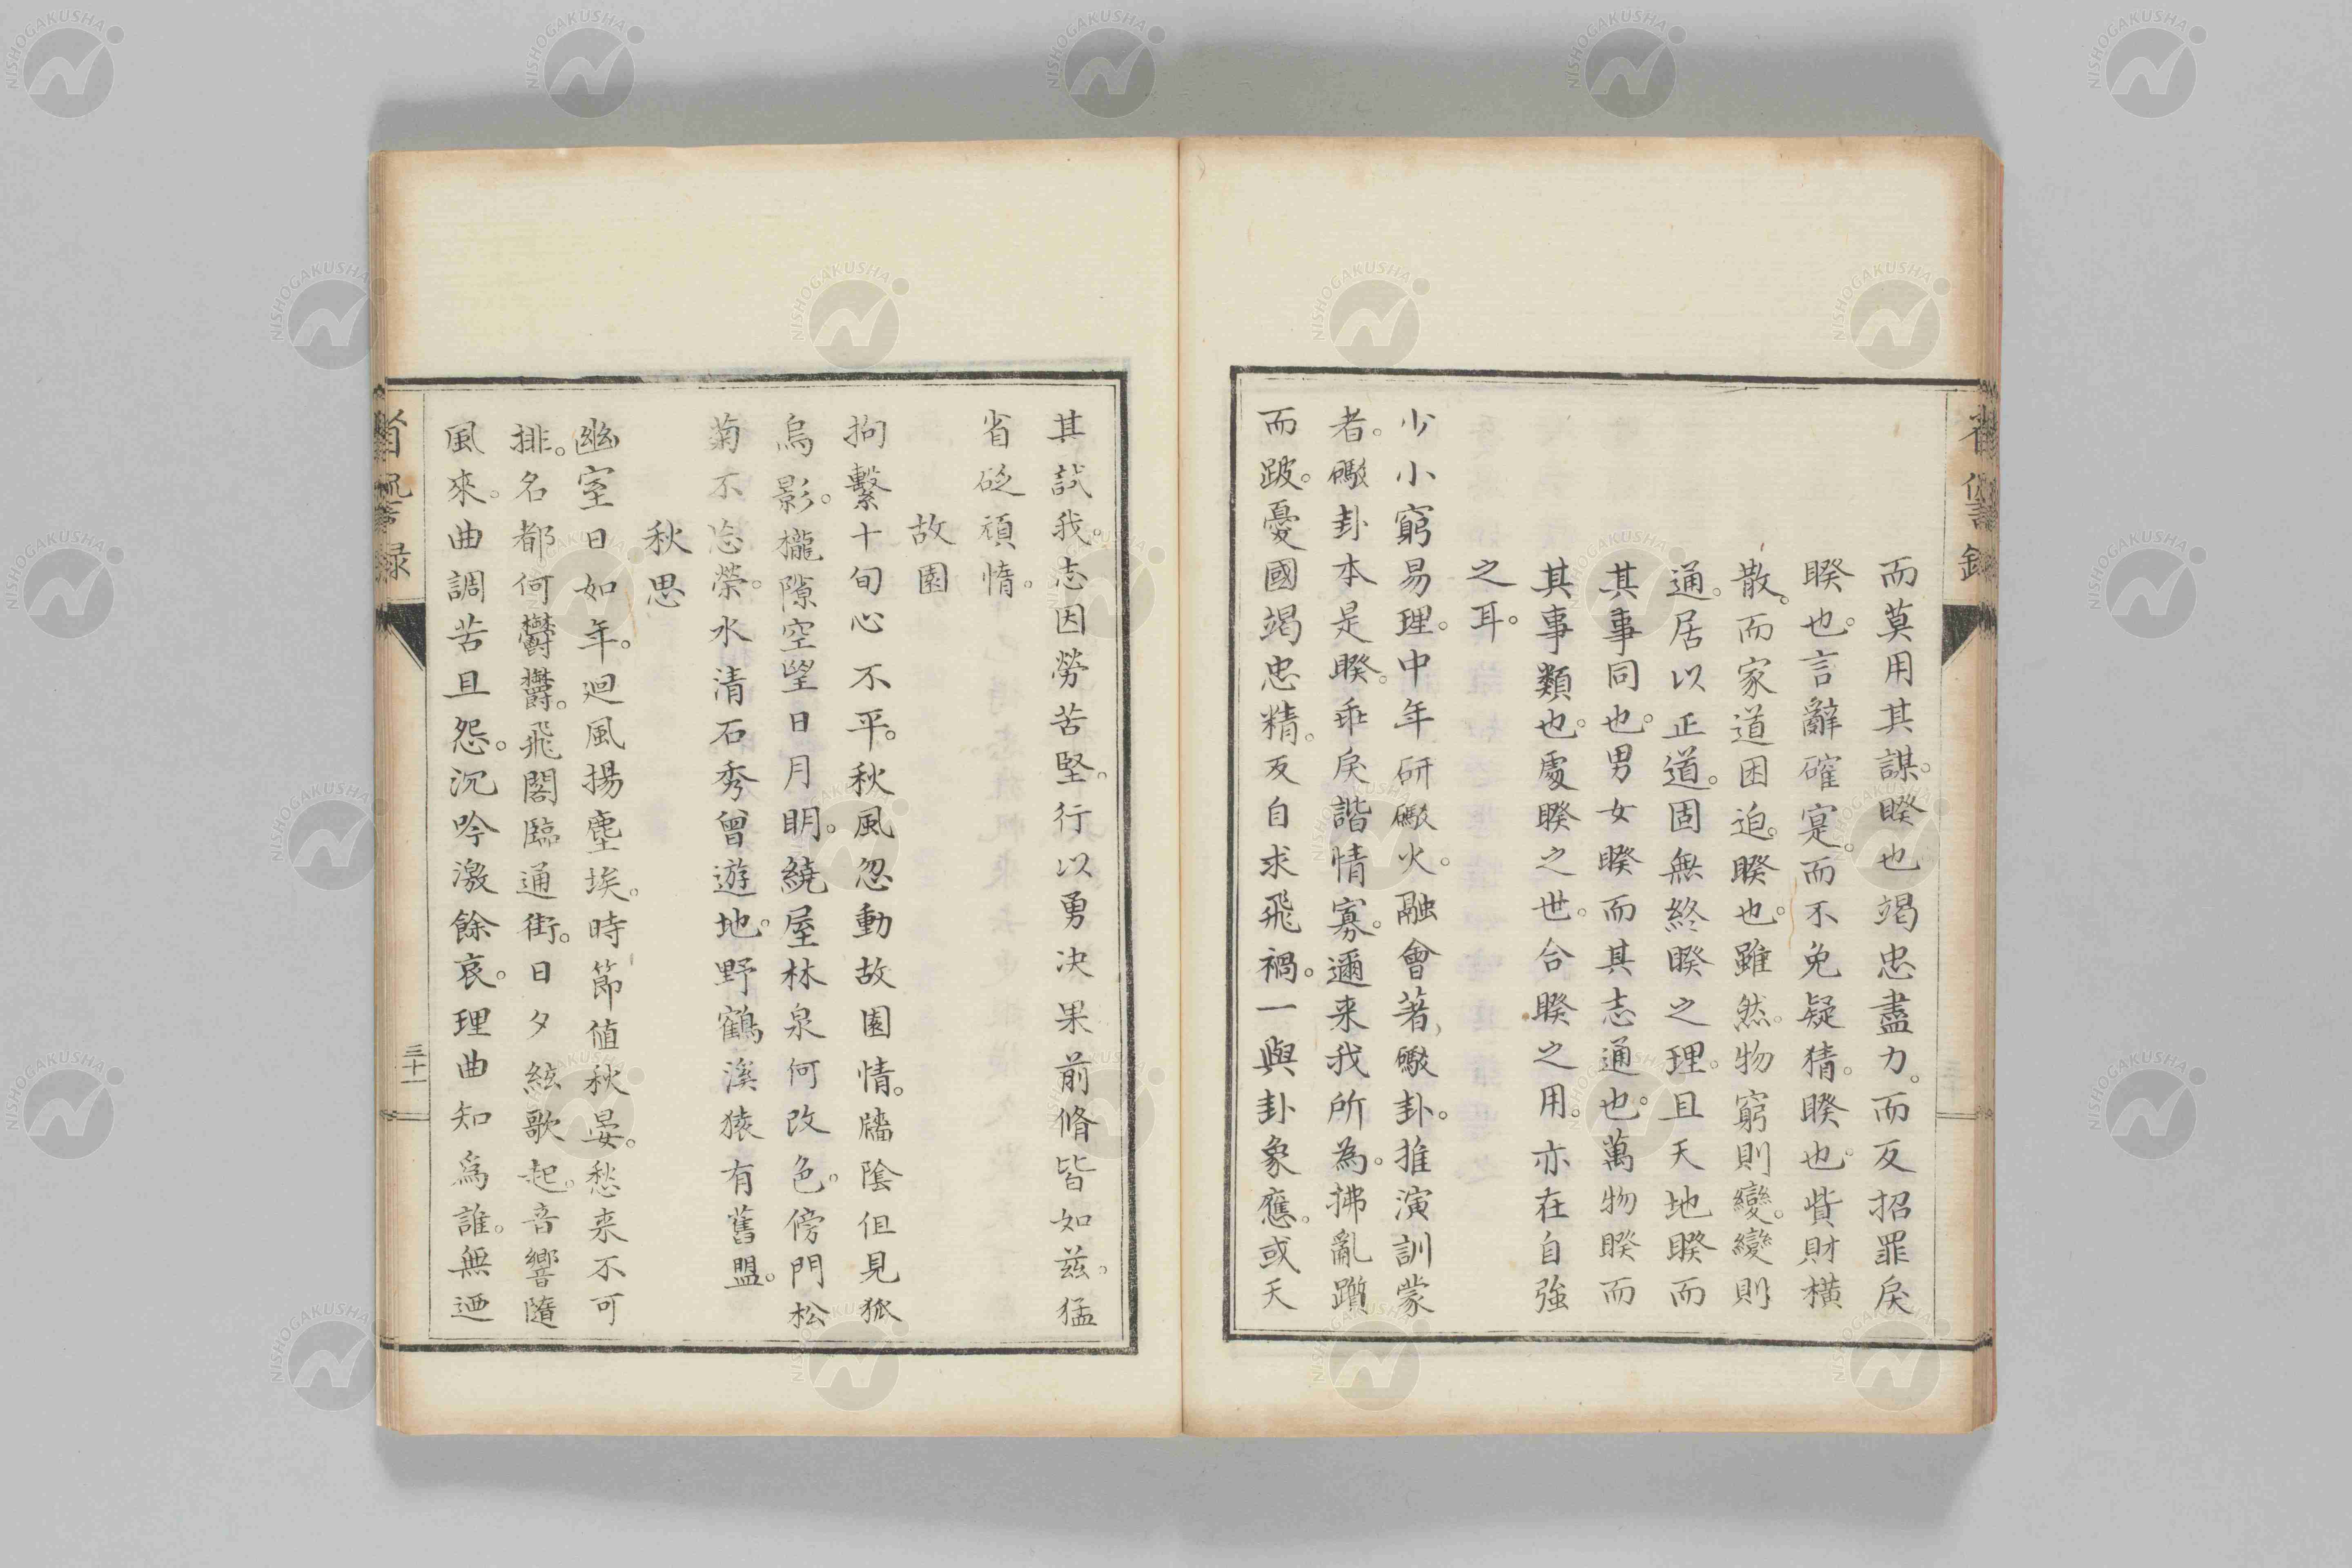 省諐録
而莫用其謀。睽也竭忠盡力。而反招罪戾
睽也。言辭確寔。而不免疑猜。睽也。貲財横
散。而家道困迫。睽也。雖然。物窮則變。變則
通。居以正道。固無終睽之理。且天地睽而
其事同也。男女睽而其志通也。萬物睽而
其事類也。處睽之世。合睽之用。亦在自強
之耳。
少小窮易理。中年研礮火。融會著礮卦。推演訓蒙
者。礮卦本是睽。乖戾諧情寡。邇来我所為。拂亂躓
而跛。憂國竭忠精。反自求飛禍。一與卦象應。或天
其試我。志因勞苦堅。行以勇决果前脩皆如茲。猛
省砭頑惰。
故園
拘繫十旬心不平。秋風忽動故園情。牆陰但見狐
烏影。櫳隙空望日月明。繞屋林泉何改色。傍門松
菊不忘榮。水清石秀曾遊地。野鶴溪猿有舊盟。
秋思
幽室日如年。廻風揚塵埃。時節値秋晏。愁来不可
排。名都何鬱鬱。飛閣臨通街。日夕絃歌起。音響隨
風來。曲調苦且怨。沉吟激餘哀。理曲知爲誰。無迺
省諐録
三十一
NISHOGAKUSHA